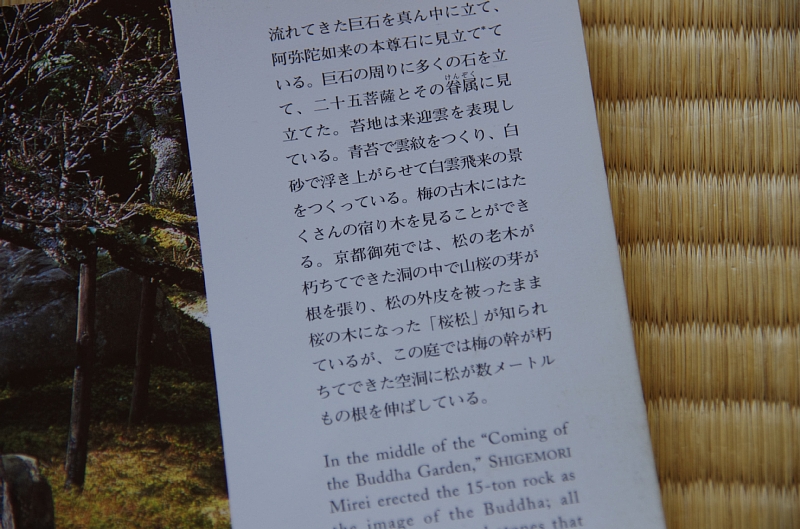 流れてきた巨石を真ん中に立て、
阿弥陀如来の本尊石に見立てて
いる。巨石の周りに多くの石を立
て、二十五菩薩とその眷属に見
立てた。苔地は来迎雲を表現し
ている。青苔で雲紋をつくり、白
砂で浮き上がらせて白雲飛来の景
をつくっている。梅の古木にはた
くさんの宿り木を見ることができ
る。京都御苑では、松の老木が
朽ちてできた洞の中で山桜の芽が
根を張り、松の外皮を被ったまま
桜の木になった「桜松」が知られ
ているが、この庭では梅の幹が朽
ちてできた空洞に松が数メートル
もの根を伸ばしている。
In the middle of the “Coming of
the Buddha Garden,” SHIGEMORI
Mirei erected the 15-ton rock as
the image of the Buddha; all
stones that